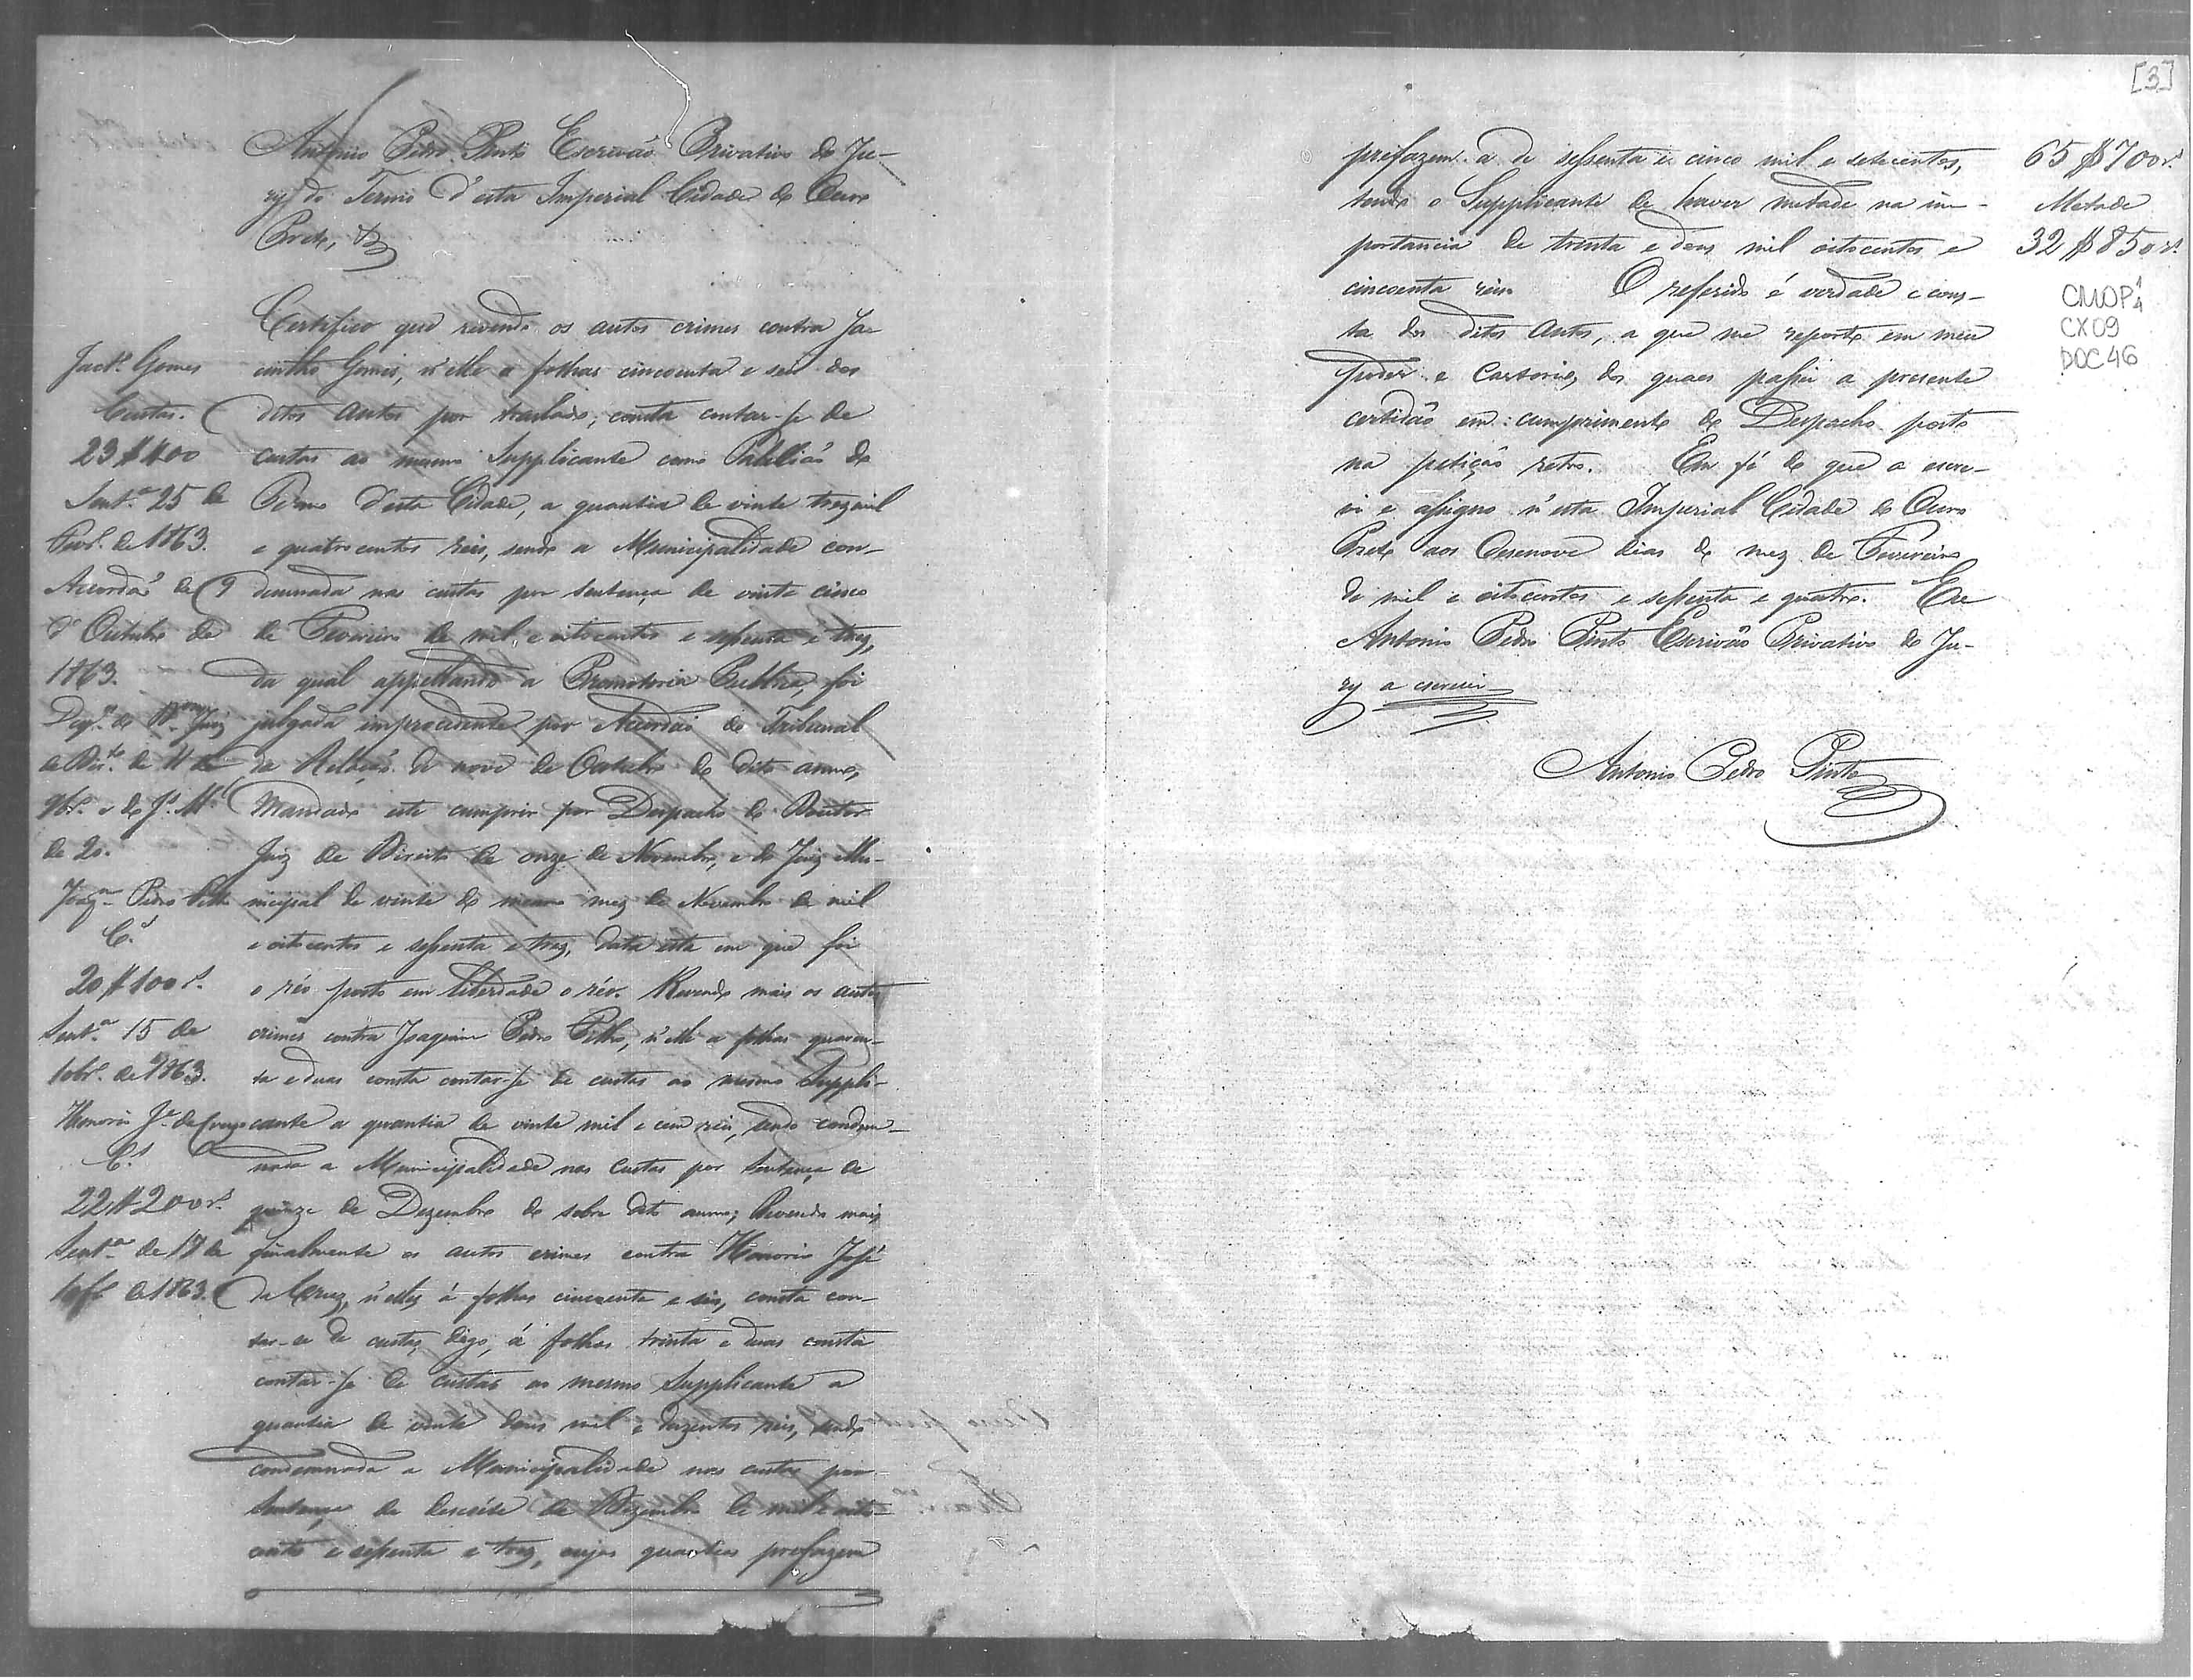 Antonio Pedro Pinto Escrivaõ Privativo do Ju-
ry do Termo d'esta Imperial Cidade de Ouro
Preto, &
Certifico que revendo os autos crimes contra Ja-
cintho Gomes, n'elle a folhas cincoenta e seis dos
ditos autos por traslado, consta contar-se de
custas ao mesmo Supplicante como Tabelliaõ do
Termo d'esta Cidade, a quantia de vinte trez mil
e quatro centos reis, sendo a Municipalidade con-
demnada nas custas por sentença de vinte cinco
de Fevereiro de mil e oito centos e sessenta e trez,
da qual appellando a Promotoria Publica, foi
julgada improcedente por Accordaõ do Tribunal
da Relaçaõ de nove de Outubro do dito anno,
Mandado este cumprir por Despacho do Doutor
Juiz de Direito de onze de Novembro, e do Juiz Mu-
nicipal de vinte do mesmo mez de Novembro de mil
e oito centos e sessenta e trez, data esta em que foi
o réo posto em liberdade o réo. Revendo mais os autos
crimes contra Joaquim Pedro Pitho, n'elle a folhas quaren-
ta e duas consta contar-se de custas ao mesmo Suppli-
cante a quantia de vinte mil e cem reis, sendo condem-
nada a Municipalidade nas custas por Sentença de
quinze de Dezembro do sobre dito anno; Revendo mais
finalmente os autos crimes contra Honorio José
da Cruz, n'elles á folhas cincoenta e seis, consta con-
tar-se de custas, digo, á folhas trinta e duas consta
contar-se de custas ao mesmo Supplicante a
quantia de vinte dous mil e duzentos reis, sendo
condemnada a Municipalidade nas custas por
Sentença de desesete de Dezembro de mil e oito-
centos e sessenta e trez, cujas quantias prefazem
Jactº. Gomes
Custas.
23$400
Sentª. 25 de
Fevº. de 1863.
Accordaõ de 9
d'Outubro de
1863.
de 11 de
9brº. e do Jº. Mal
de 20.
Joaqm. Pedro Pitho
Cs.
20$100rs.
Sentª. 15 de
10brº. de 1863.
Honorio Jé. da Cruz
Cs.
22$200rs.
Sentª. de 17 de
10brº. de 1863.
[3]
prefazem a de sessenta e cinco mil e setecentos,
tendo o Supplicante de haver metade na im-
portancia de trinta e dous mil oitocentos e
cincoenta reis. O referido é verdade e cons-
ta dos ditos autos, a que me reporto em meu
poder e Cartorio, dos quaes passei a presente
certidaõ em cumprimento do Despacho posto
na petiçaõ retro. Em fé do que a escre-
vi e assigno n'esta Imperial Cidade do Ouro
Preto aos desenove dias do mez de Fevereiro
de mil e oitocentos e sessenta e quatro. Eu
Antonio Pedro Pinto Escrivaõ Privativo do Ju-
ry a escrevi
Antonio Pedro Pinto
65$700rs.
Metade
32$850rs.
CMOP
CX09
DOC46